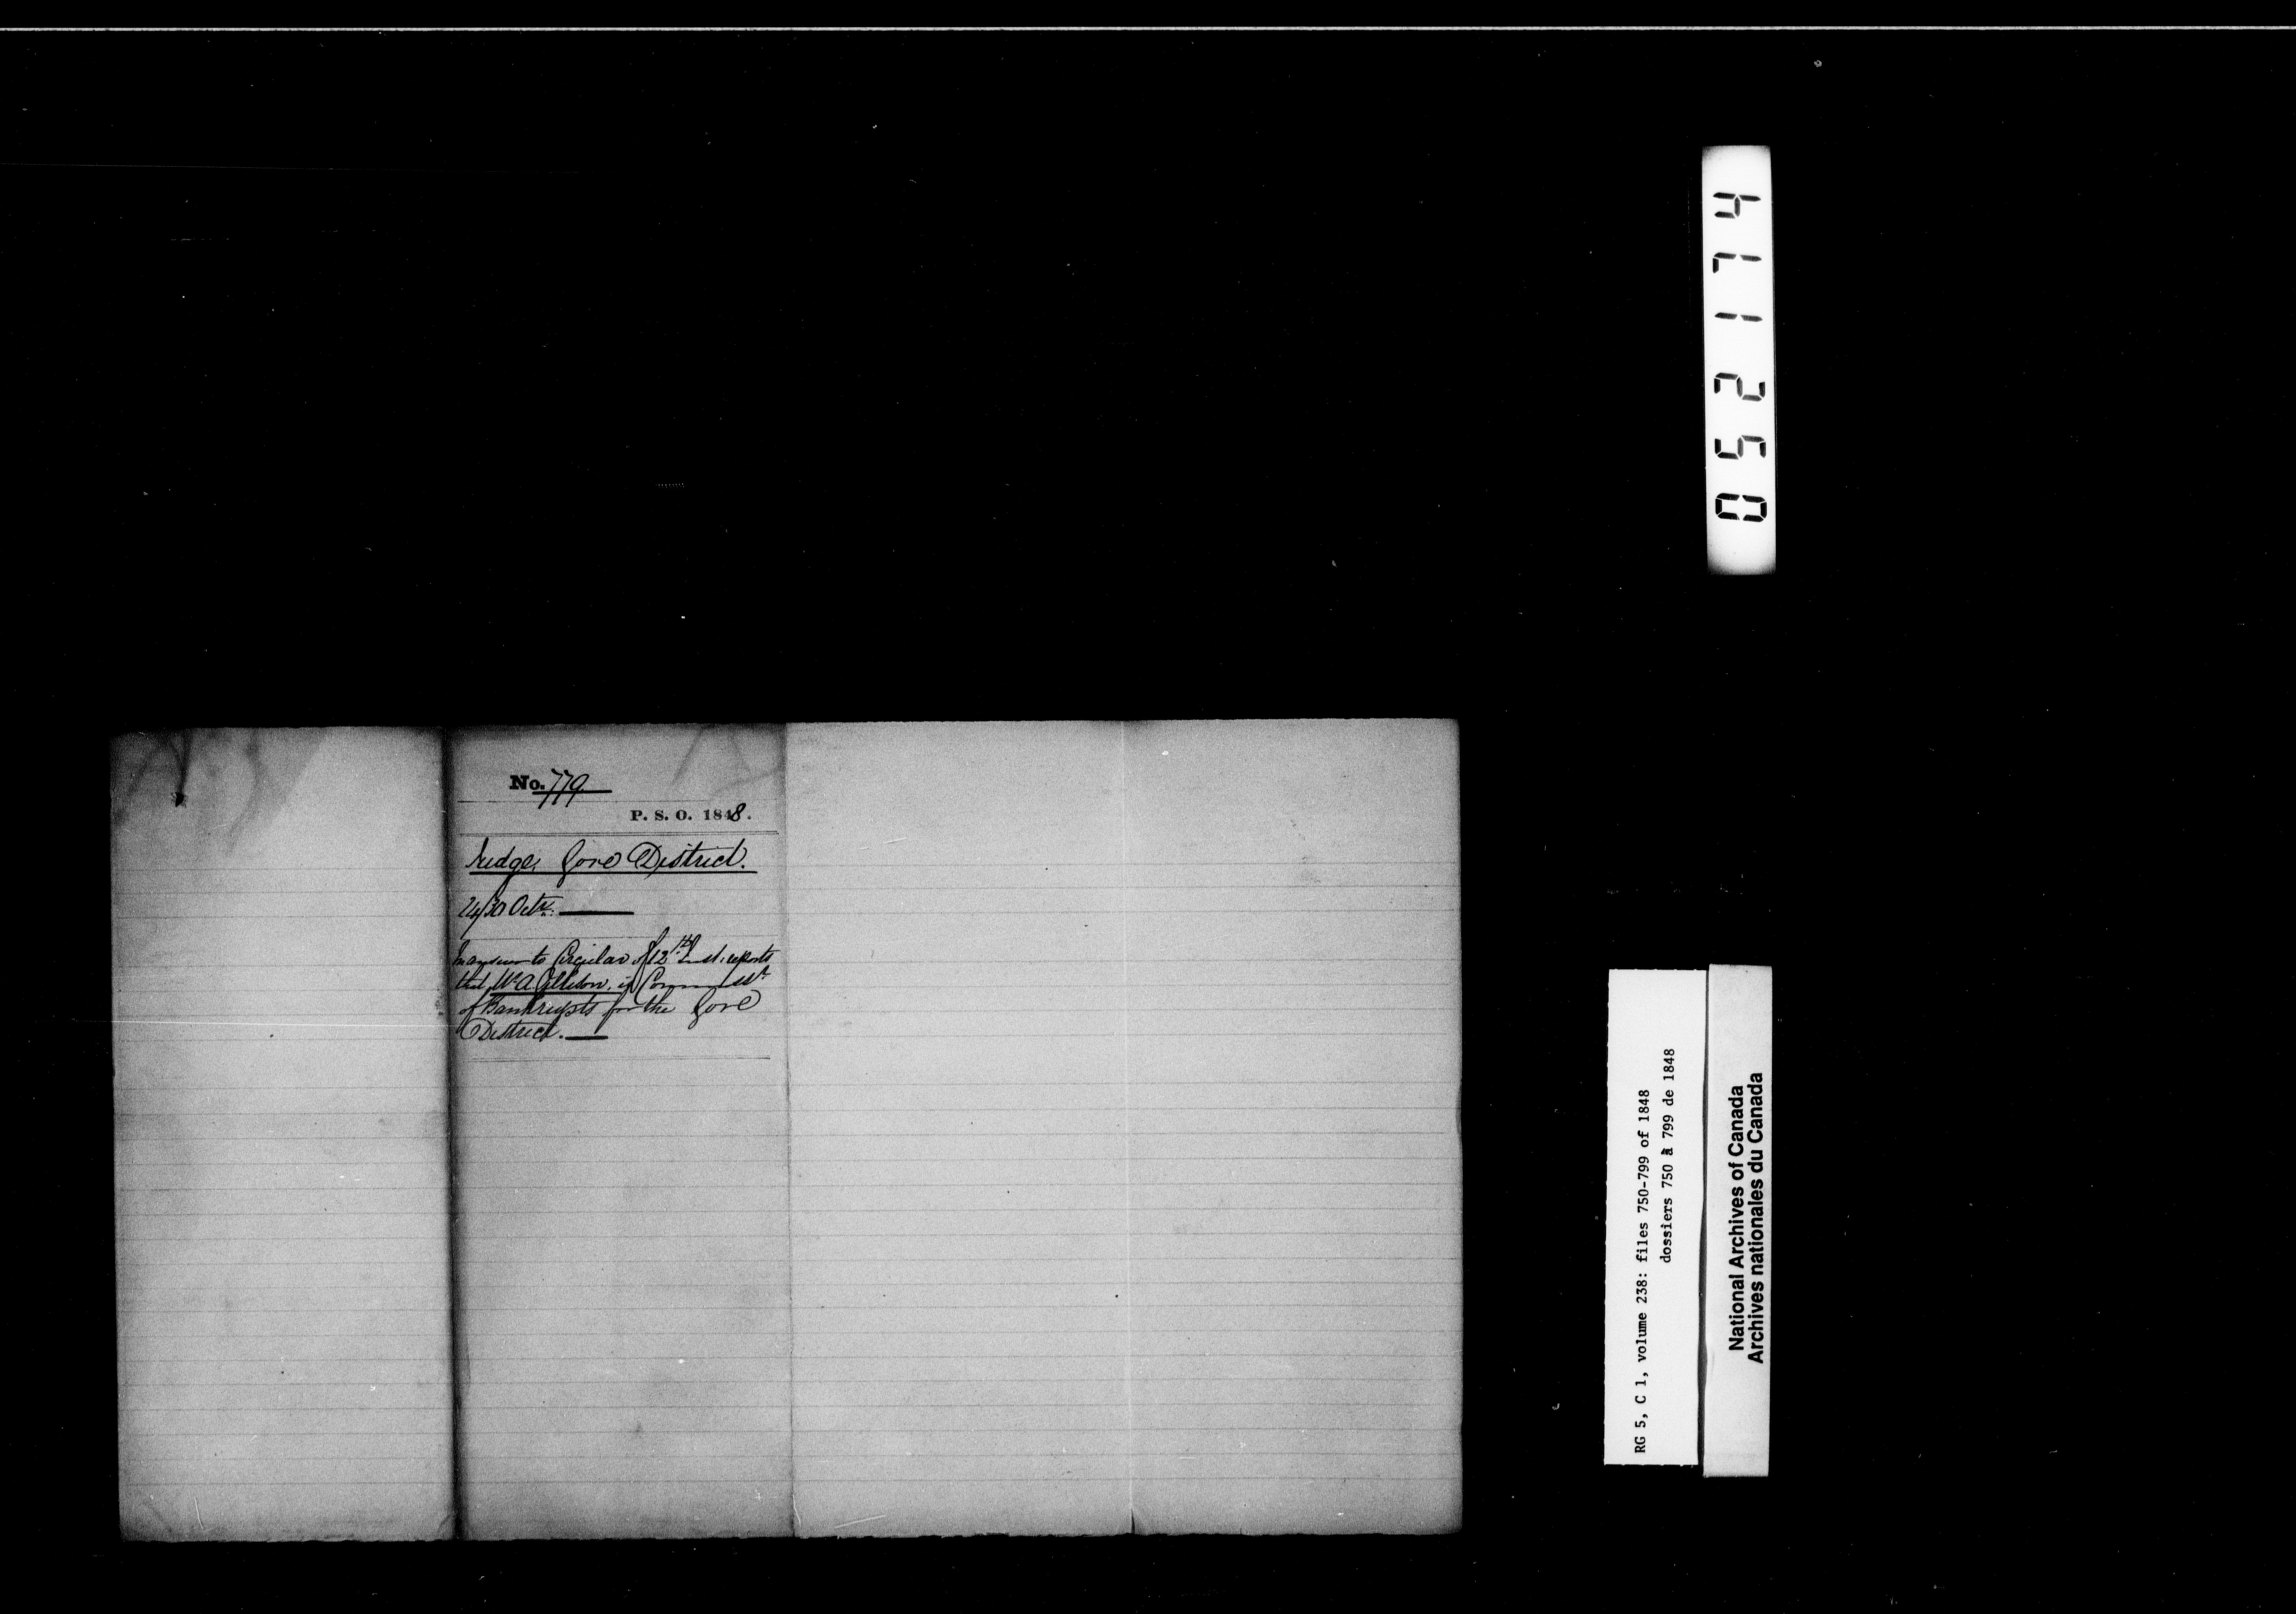 No. 779
P. S. O. 1848.
Judge, Gore District.
24/30 Octr.
In answer to Circular of 12th Inst. reports
that W. A. is Commisst
of Bankrupts for the Gore
District.
052174
RG 5, C 1, volume 238: files 750-799 of 1848
dossiers 750 à 799 de 1848
National Archives of Canada
Archives nationales du Canada